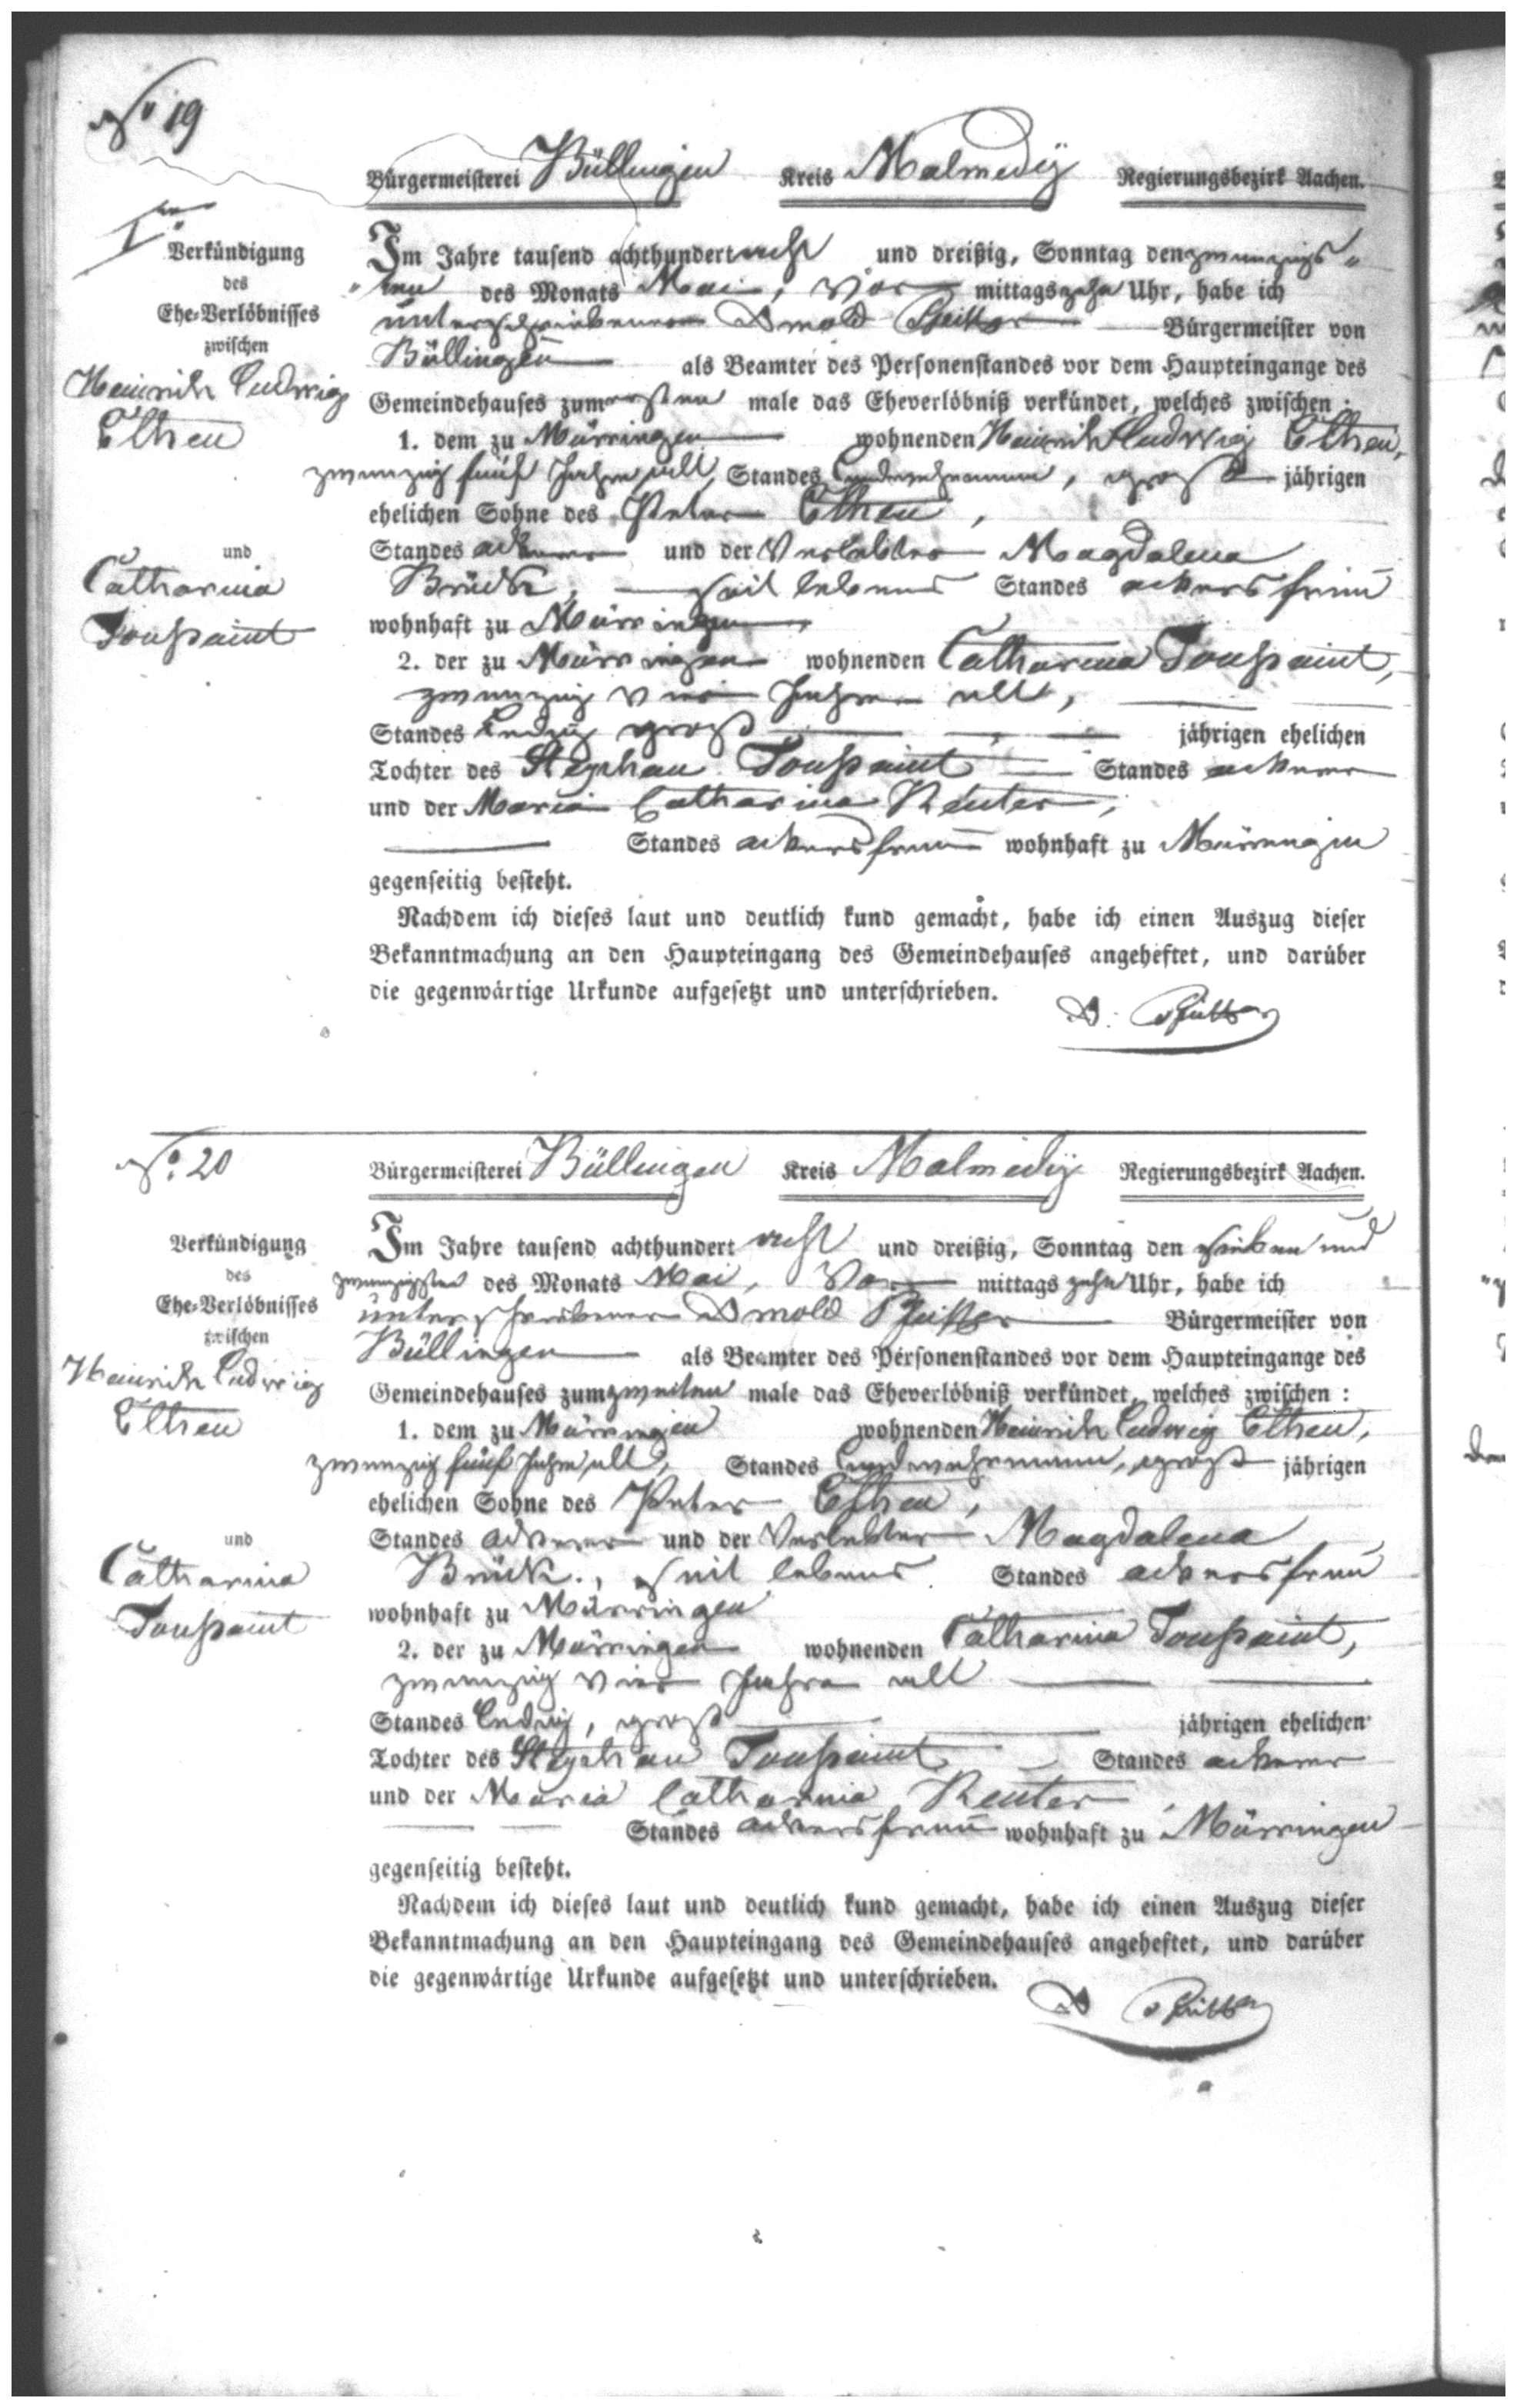 No 19
Bürgermeisterei Büllingen Kreis Malmedÿ Regierungsbezirk Aachen.
I
Verkündigung
des
Ehe-Verlöbnisses
zwischen
Heinrich Ludwig
Ethen
und
Catharina
Toussaint
Im Jahre tausend achthundert acht und dreißig, Sonntag den zwanzigs-
ten des Monats Mai, Vor mittags zehn Uhr, habe ich
unterschriebener Arnold Bürgermeister von
Büllingen als Beamter des Personenstandes vor dem Haupteingange des
Gemeindehauses zum ersten male das Eheverlöbniß verkündet, welches zwischen:
1. dem zu Mürringen wohnenden Heinrich Ludwig Ethen,
zwanzig fünf Jahre alt, Standes Landwehrmann, groß jährigen
ehelichen Sohne des Peter Ethen,
Standes ackerer und der Verlebter Magdalena
Brück, seit lebens Standes ackersfrau
wohnhaft zu Mürringen,
2. der zu Mürringen wohnenden Catharina Toussaint,
zwanzig vier Jahre alt,
Standes Ledig groß jährigen ehelichen
Tochter des Stephan Toussaint Standes ackerer
und der Maria Catharina Reuter,
Standes ackersfrau wohnhaft zu Mürringen
gegenseitig besteht.
Nachdem ich dieses laut und deutlich kund gemacht, habe ich einen Auszug dieser
Bekanntmachung an den Haupteingang des Gemeindehauses angeheftet, und darüber
die gegenwärtige Urkunde aufgesetzt und unterschrieben.
A.
No. 20
Bürgermeisterei Büllingen Kreis Malmedÿ Regierungsbezirk Aachen.
Verkündigung
des
Ehe-Verlöbnisses
zwischen
Heinrich Ludwig
Ethen
und
Catharina
Toussaint
Im Jahre tausend achthundert acht und dreißig, Sonntag den sieben und
zwanzigsten des Monats Mai, Vor mittags zehn Uhr, habe ich
unterschriebener Arnold Bürgermeister von
Büllingen als Beamter des Personenstandes vor dem Haupteingange des
Gemeindehauses zum zweiten male das Eheverlöbniß verkündet, welches zwischen:
1. dem zu Mürringen wohnenden Heinrich Ludwig Ethen,
zwanzig fünf Jahre alt, Standes Landwehrmann, groß jährigen
ehelichen Sohne des Peter Ethen,
Standes ackerer und der Verlebter Magdalena
Brück, seit lebens Standes ackersfrau
wohnhaft zu Mürringen
2. der zu Mürringen wohnenden Catharina Toussaint,
zwanzig vier Jahre alt
Standes Ledig, groß jährigen ehelichen
Tochter des Stephan Toussaint Standes ackerer
und der Maria Catharina Reuter,
Standes ackersfrau wohnhaft zu Mürringen
gegenseitig besteht.
Nachdem ich dieses laut und deutlich kund gemacht, habe ich einen Auszug dieser
Bekanntmachung an den Haupteingang des Gemeindehauses angeheftet, und darüber
die gegenwärtige Urkunde aufgesetzt und unterschrieben.
A